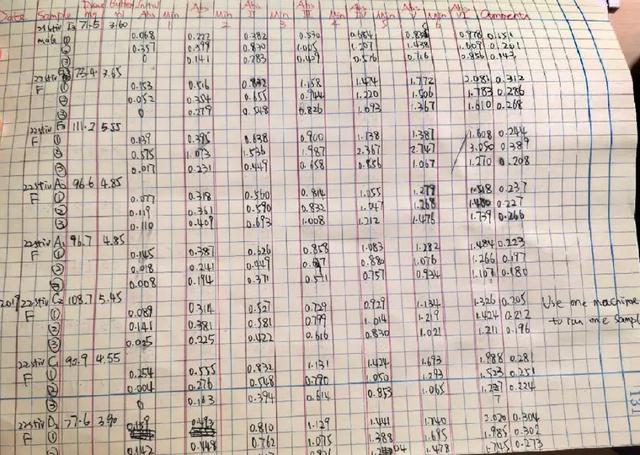 Date Sample Buffer Initial Abs Min Abs Min Abs Min Abs Min Abs Comments
mg ml Abs
male 71.5 3.60
① 0.068 0.382 0.530 0.684 0.978 0.151
② 0.357 0.599 0.830 1.005 1.207 1.438 0.201
③ 0.141 0.283 0.429 0.576 0.716 0.856 0.143
3.65
F ① 0.153 0.516 1.158 1.474 1.772 2.081 0.312
② 0.052 0.354 0.655 0.944 1.220 1.506 1.783 0.286
③ 0 0.279 0.548 0.826 1.093 1.367 1.610 0.268
111.2 5.55
F ① 0.139 0.395 0.638 0.900 1.138 1.387 1.608 0.244
② 0.575 1.073 1.536 1.987 2.367 2.747 3.050 0.389
③ 0.017 0.231 0.449 0.658 0.856 1.067 1.270 0.208
96.6 4.85
F ① 0.077 0.318 0.560 0.814 1.055 1.279 0.237
② 0.119 0.361 0.590 0.832 1.047 1.268 0.227
③ 0.110 0.409 0.693 1.008 1.212 1.476 1.739 0.266
96.7 4.85
F ① 0.145 0.387 0.626 0.858 1.083 1.282 1.484 0.223
② 0.018 0.241 0.449 0.880 1.076 1.266 0.197
③ 0.008 0.194 0.371 0.571 0.757 0.934 1.107 0.180
2019 108.7 5.45
F ① 0.089 0.314 0.527 0.729 0.929 1.134 1.326 0.205 Use one machine
② 0.141 0.381 0.581 0.799 1.014 1.219 1.424 0.212 to run one sample
③ 0.025 0.225 0.422 0.616 0.830 1.021 1.211 0.196
90.9 4.55
F ① 0.254 0.555 0.832 1.131 1.424 1.693 1.988 0.281
② 0.004 0.276 0.548 0.790 1.050 1.293 1.523 0.251
③ 0 0.394 0.614 0.853 1.065 0.224
77.6 3.90
F ① 0.810 1.129 1.441 1.740 2.020 0.304
② 0.448 0.762 1.075 1.388 1.695 1.985 0.302
0.142 1.478 1.745 0.273